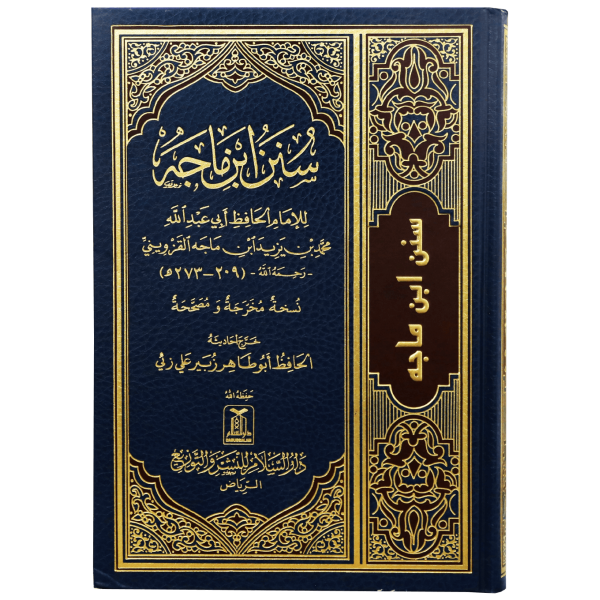 سُنَنُ ابْنِ مَاجَهْ
لِلإِمَامِ الْحَافِظِ أَبِي عَبْدِ اللَّهِ
مُحَمَّدِ بْنِ يَزِيدَ ابْنِ مَاجَه الْقَزْوِينِيِّ
- رَحِمَهُ اللَّهُ - (٢٠٩ - ٢٧٣هـ)
نُسْخَةٌ مُخَرَّجَةٌ وَ مُصَحَّحَةٌ
خَرَّجَ أَحَادِيثَهُ
الْحَافِظُ أَبُو طَاهِر زُبَير عَلي زَئي
حَفِظَهُ اللَّهُ
دارالسلام
DARUSSALAM
دَارُ السَّلَام لِلنَّشْرِ وَالتَّوزِيع
الرِّيَاض
سنن ابن ماجه